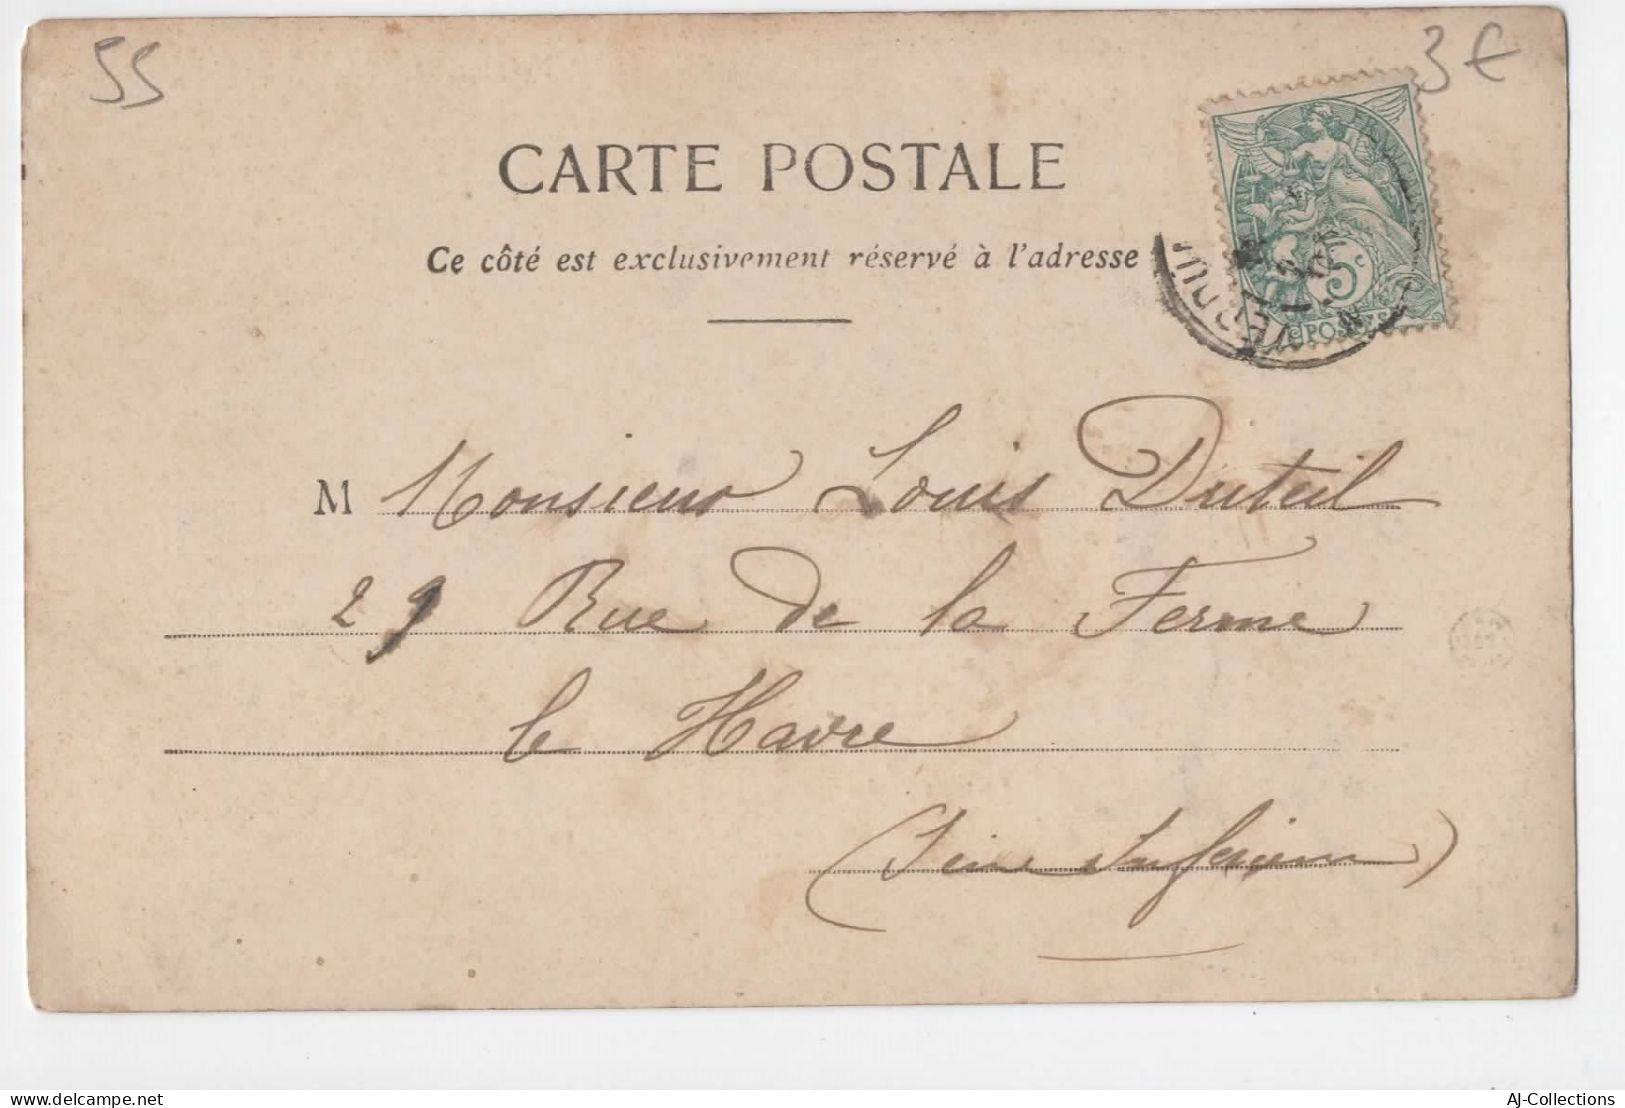 55
3 €
CARTE POSTALE
Ce côté est exclusivement réservé à l'adresse
5c
POSTES
VERDUN
M Monsieur Louis Duteil
29 Rue de la Ferme
le Havre
(Seine Inférieure)
delcampe.net
AJ-Collections